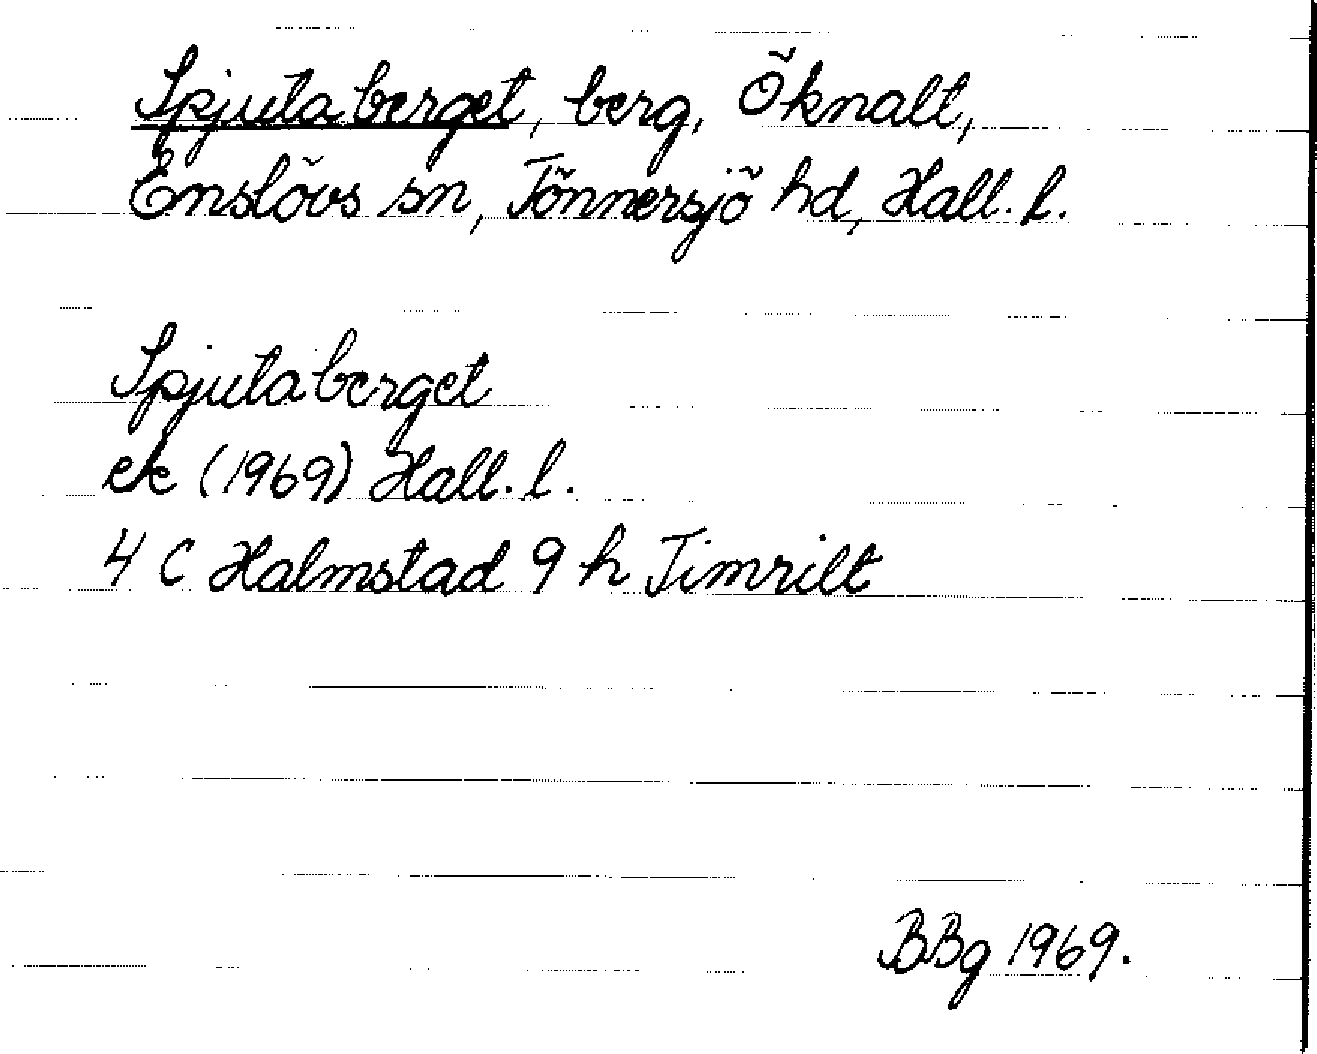 Spjutaberget, berg, Öknalt,
Enslövs sn, Tönnersjö hd, Hall. l.
Spjutaberget
ek (1969) Hall. l.
4 C Halmstad 9 h Timrilt
BBg 1969.